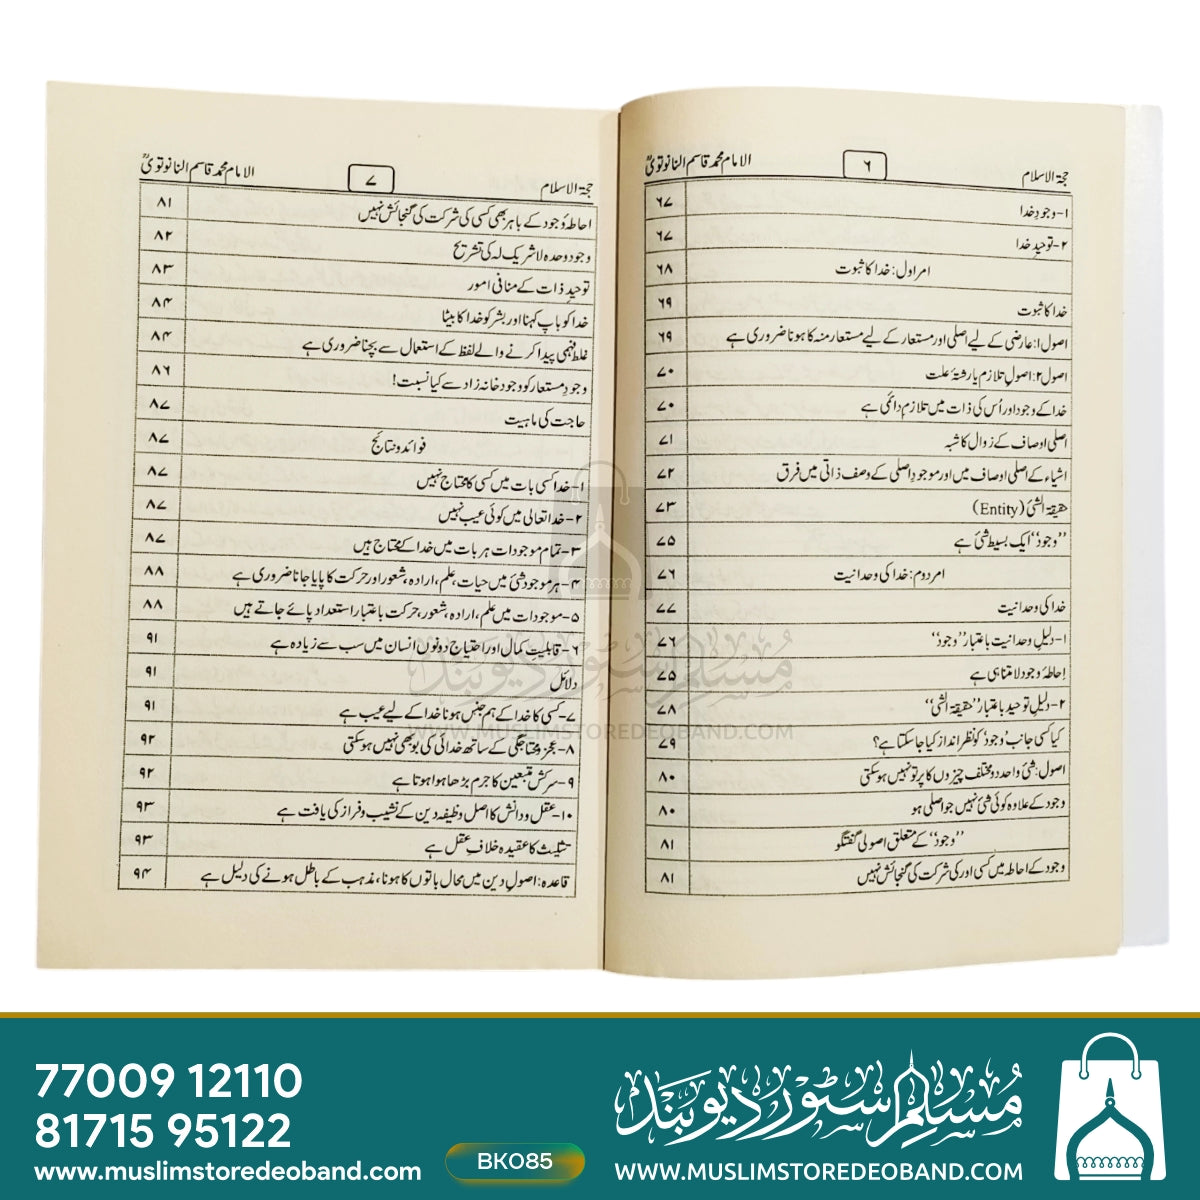 حجۃ الاسلام ۶ الامام محمد قاسم النانوتویؒ
۱- وجودِ خدا ۶۷
۲- توحیدِ خدا ۶۷
امر اول: خدا کا ثبوت ۶۸
خدا کا ثبوت ۶۹
اصول۱: عارضی کے لیے اصلی اور مستعار کے لیے مستعار منہ کا ہونا ضروری ہے ۶۹
اصول۲: اصولِ تلازم یا رشتۂ علت ۷۰
خدا کے وجود اور اُس کی ذات میں تلازم دائمی ہے ۷۰
اصلی اوصاف کے زوال کا شبہ ۷۱
اشیاء کے اصلی اوصاف میں اور موجودِ اصلی کے وصف ذاتی میں فرق ۷۲
حقیقۃ الشئ (Entity) ۷۳
”وجود“ ایک بسیط شئ ہے ۷۵
امر دوم: خدا کی وحدانیت ۷۶
خدا کی وحدانیت ۷۷
۱- دلیلِ وحدانیت باعتبار ”وجود“ ۷۶
اِحاطۂ وجود لامتناہی ہے ۷۵
۲- دلیلِ توحید باعتبار ”حقیقۃ الشی“ ۷۸
کیا کسی جانب ’وجود‘ کو نظر انداز کیا جا سکتا ہے؟ ۷۹
اصول: شئ واحد دو مختلف چیزوں کا پرتو نہیں ہو سکتی ۸۰
وجود کے علاوہ کوئی شئ نہیں جو اصلی ہو ۸۰
”وجود“ کے متعلق اصولی گفتگو ۸۱
وجود کے احاطہ میں کسی اور کی شرکت کی گنجائش نہیں ۸۱
حجۃ الاسلام ۷ الامام محمد قاسم النانوتویؒ
احاطۂ وجود کے باہر بھی کسی کی شرکت کی گنجائش نہیں ۸۱
وجود وحدہ لا شریک لہ کی تشریح ۸۲
توحیدِ ذات کے منافی امور ۸۳
خدا کو باپ کہنا اور بشر کو خدا کا بیٹا ۸۴
غلط فہمی پیدا کرنے والے لفظ کے استعمال سے بچنا ضروری ہے ۸۴
وجودِ مستعار کو وجود خانہ زاد سے کیا نسبت! ۸۶
حاجت کی ماہیت ۸۷
فوائد و نتائج ۸۷
۱- خدا کسی بات میں کسی کا محتاج نہیں ۸۷
۲- خدا تعالی میں کوئی عیب نہیں ۸۷
۳- تمام موجودات ہر بات میں خدا کے محتاج ہیں ۸۷
۴- ہر موجود شئ میں حیات، علم، ارادہ، شعور اور حرکت کا پایا جانا ضروری ہے ۸۸
۵- موجودات میں علم، ارادہ، شعور، حرکت باعتبار استعداد پائے جاتے ہیں ۸۸
۶- قابلیتِ کمال اور احتیاج دونوں انسان میں سب سے زیادہ ہے ۹۱
دلائل ۹۱
۷- کسی کا خدا کے ہم جنس ہونا خدا کے لیے عیب ہے ۹۱
۸- عجز و محتاجگی کے ساتھ خدائی کی بو بھی نہیں ہو سکتی ۹۲
۹- سرکش متبعین کا جرم بڑھا ہوا ہوتا ہے ۹۲
۱۰- عقل و دانش کا اصل وظیفہ دین کے نشیب و فراز کی یافت ہے ۹۳
تثلیث کا عقیدہ خلافِ عقل ہے ۹۳
قاعدہ: اصولِ دین میں محال باتوں کا ہونا، مذہب کے باطل ہونے کی دلیل ہے ۹۴
مسلم سٹور دیوبند
WWW.MUSLIMSTOREDEOBAND.COM
77009 12110
81715 95122
www.muslimstoredeoband.com
BK085
مسلم سٹور دیوبند
WWW.MUSLIMSTOREDEOBAND.COM